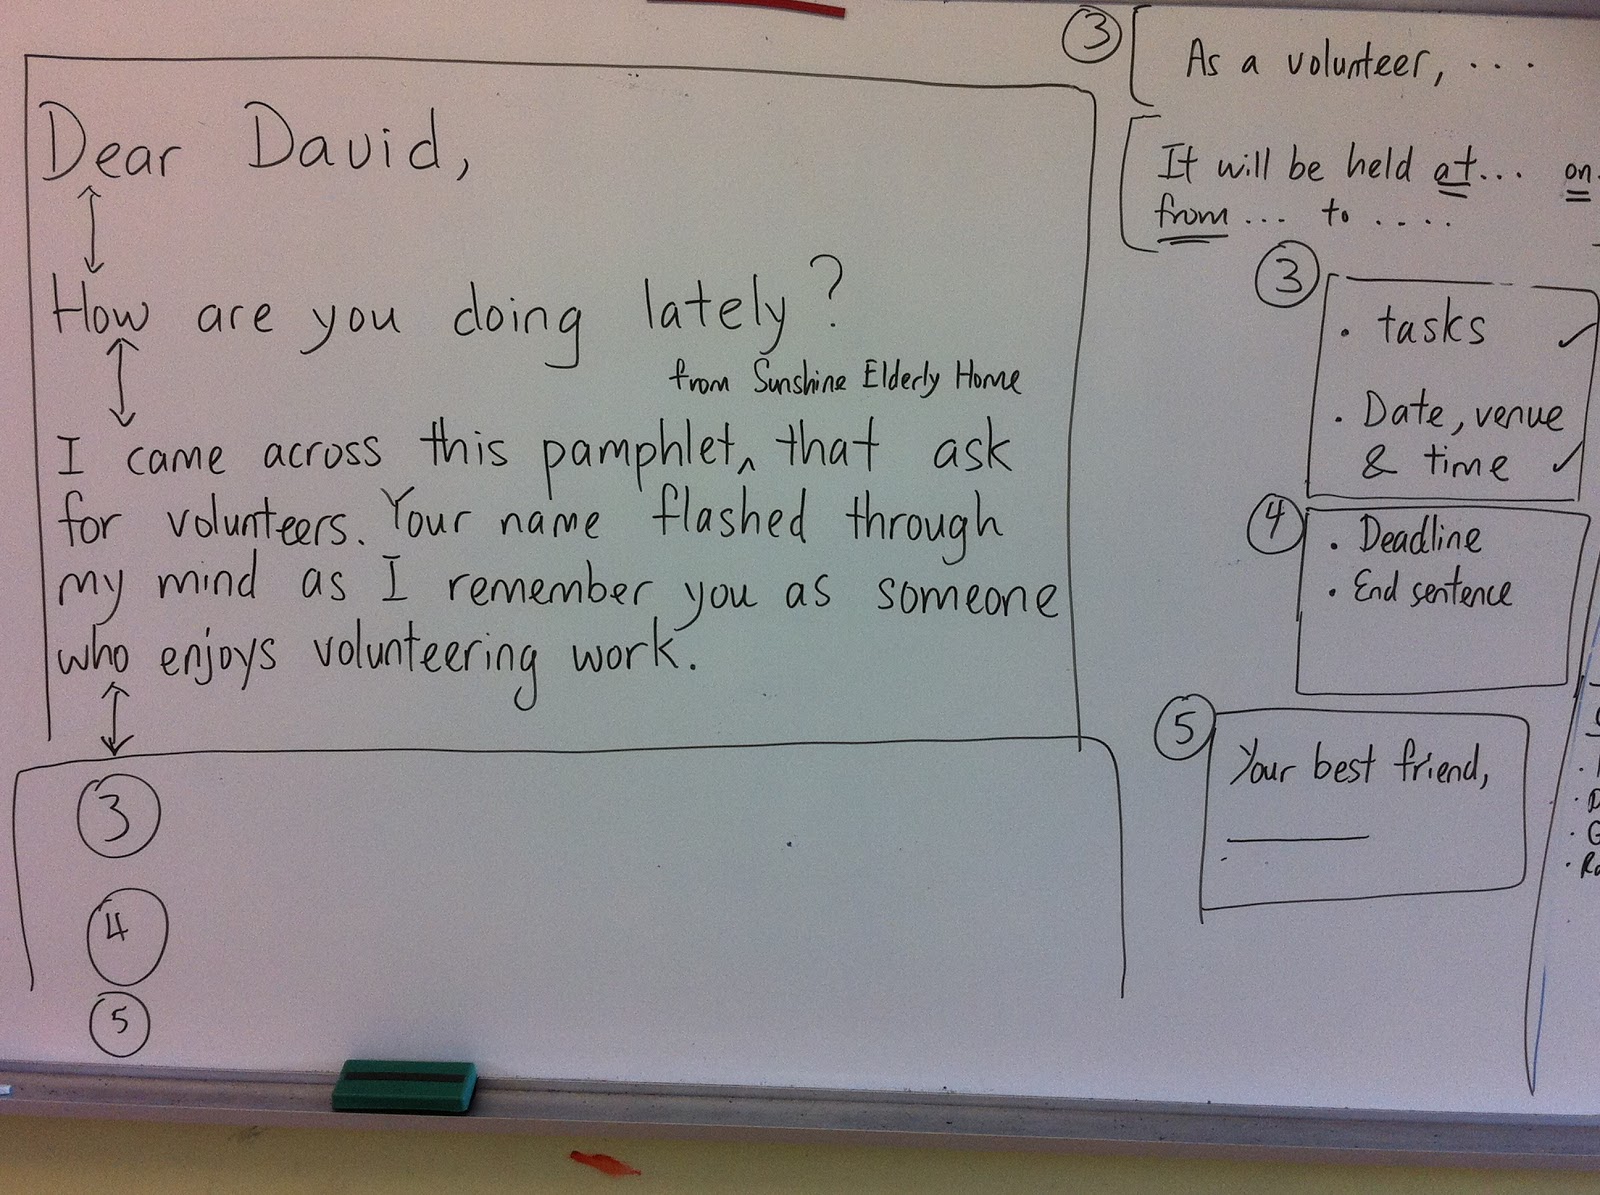 Dear David,
How are you doing lately?
from Sunshine Elderly Home
I came across this pamphlet, that ask
for volunteers. Your name flashed through
my mind as I remember you as someone
who enjoys volunteering work.
3
4
5
3
As a volunteer, ...
It will be held at... on.
from ... to ....
3
· tasks ✓
· Date, venue
& time ✓
4
· Deadline
· End sentence
5
Your best friend,